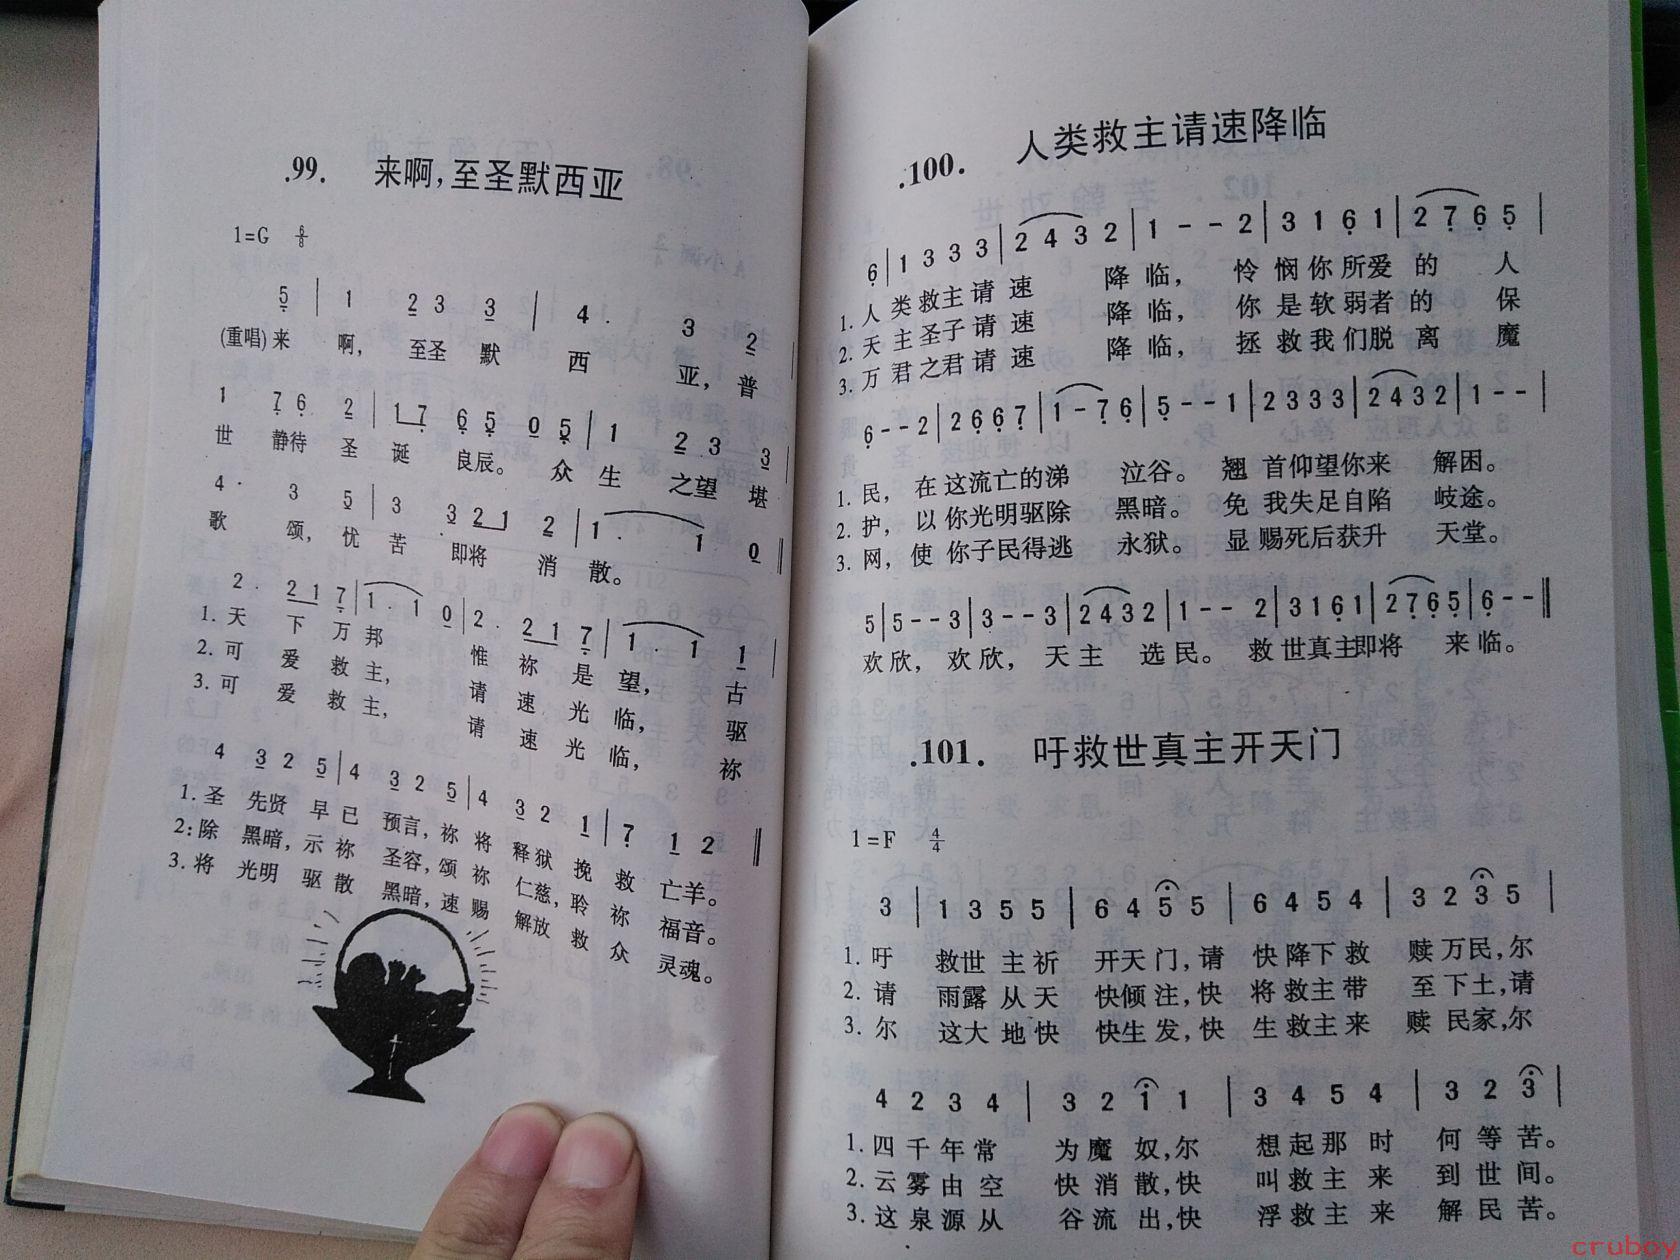 .99. 来啊,至圣默西亚
1=G 6/8
5 | 1 2 3 3 | 4 · 3 2 |
(重唱)来 啊, 至圣 默 西 亚, 普
1 7 6 2 | 1 7 6 5 0 5 | 1 2 3 3 |
世 静待 圣 诞 良辰。 众 生 之望 堪
4 · 3 5 | 3 3 2 1 2 | 1 · 1 0 ||
歌 颂, 忧 苦 即将 消 散。
2 · 2 1 7 | 1 · 1 0 | 2 · 2 1 7 | 1 · 1 1 |
1. 天 下 万 邦 惟 祢 是 望, 古
2. 可 爱 救 主, 请 速 光 临, 驱
3. 可 爱 救 主, 请 速 光 临, 祢
4 3 2 5 | 4 3 2 5 | 4 3 2 1 | 7 1 2 ||
1. 圣 先贤 早 已 预言, 祢 将 释狱 挽 救 亡羊。
2: 除 黑暗, 示 祢 圣容, 颂 祢 仁慈, 聆 祢 福音。
3. 将 光明 驱 散 黑暗, 速 赐 解放 救 众 灵魂。
.100. 人类救主请速降临
6 | 1 3 3 3 | 2 4 3 2 | 1 - - 2 | 3 1 6 1 | 2 7 6 5 |
1. 人 类 救主 请 速 降 临, 怜 悯 你 所爱 的 人
2. 天 主 圣子 请 速 降 临, 你 是 软 弱者 的 保
3. 万 君 之君 请 速 降 临, 拯 救 我 们脱 离 魔
6 - - 2 | 2 6 6 7 | 1 - 7 6 | 5 - - 1 | 2 3 3 3 | 2 4 3 2 | 1 - - |
1. 民, 在 这流亡的涕 泣谷。 翘 首仰望你来 解困。
2. 护, 以 你光明驱除 黑暗。 免 我失足自陷 岐途。
3. 网, 使 你子民得逃 永狱。 显 赐死后获升 天堂。
5 | 5 - - 3 | 3 - - 3 | 2 4 3 2 | 1 - - 2 | 3 1 6 1 | 2 7 6 5 | 6 - - ||
欢 欣, 欢 欣, 天 主 选 民。 救 世真主即将 来 临。
.101. 吁救世真主开天门
1=F 4/4
3 | 1 3 5 5 | 6 4 5 5 | 6 4 5 4 | 3 2 3 5 |
1. 吁 救世 主祈 开天 门, 请 快降下 救 赎 万民, 尔
2. 请 雨露 从天 快倾 注, 快 将救主 带 至 下土, 请
3. 尔 这大 地快 快生 发, 快 生救主 来 赎 民家, 尔
4 2 3 4 | 3 2 1 1 | 3 4 5 4 | 3 2 3 |
1. 四 千 年 常 为 魔 奴, 尔 想 起 那 时 何 等 苦。
2. 云 雾 由 空 快 消 散, 快 叫 救 主 来 到 世 间。
3. 这 泉 源 从 谷 流 出, 快 浮 救 主 来 解 民 苦。
cruboy